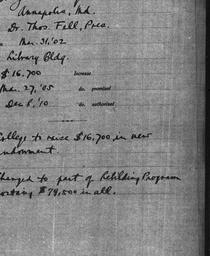 Annapolis, Md.
Dr. Thos. Fell, Pres.
Mar. 31, '02
Library Bldg.
$16,700 Increase
Mar. 27, '05 do. promised
Dec 8, '10 do. authorized
College to raise $16,700 in new
endowment.
Changed to part of Rebilding Program
costing $79,500 in all.